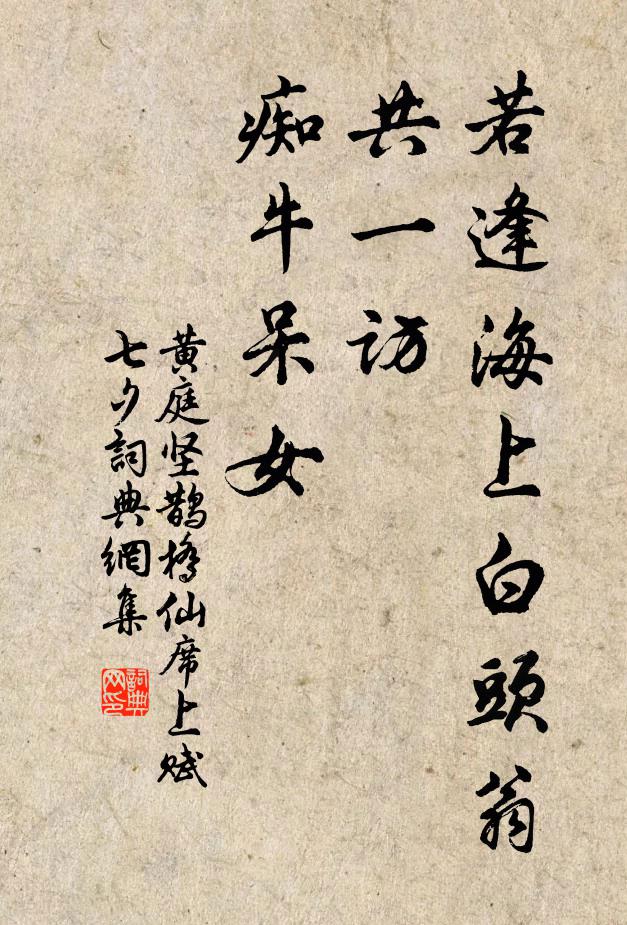 若逢海上白頭翁
共一访
痴牛呆女
黄庭坚鹊橋仙席上赋
七夕詞典網集
詞典网印